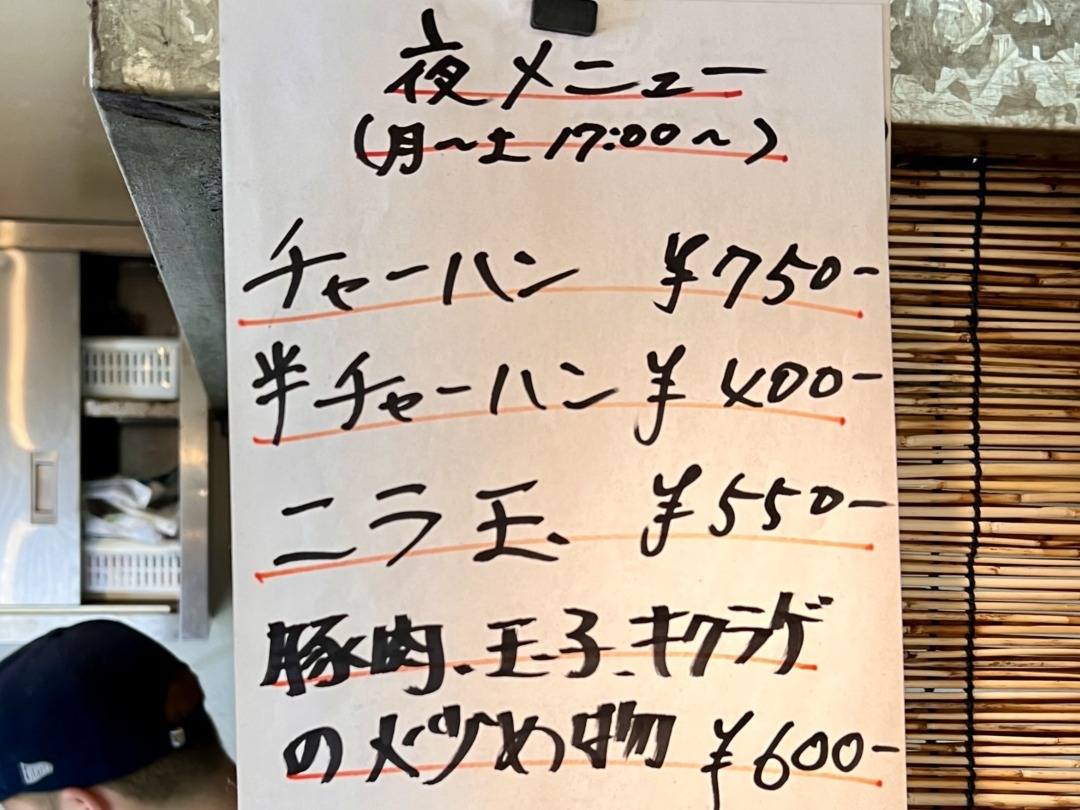 夜メニュー
(月〜土 17:00〜)
チャーハン ¥750-
半チャーハン ¥400-
ニラ玉 ¥550-
豚肉、玉子、キクラゲ
の炒め物 ¥600-